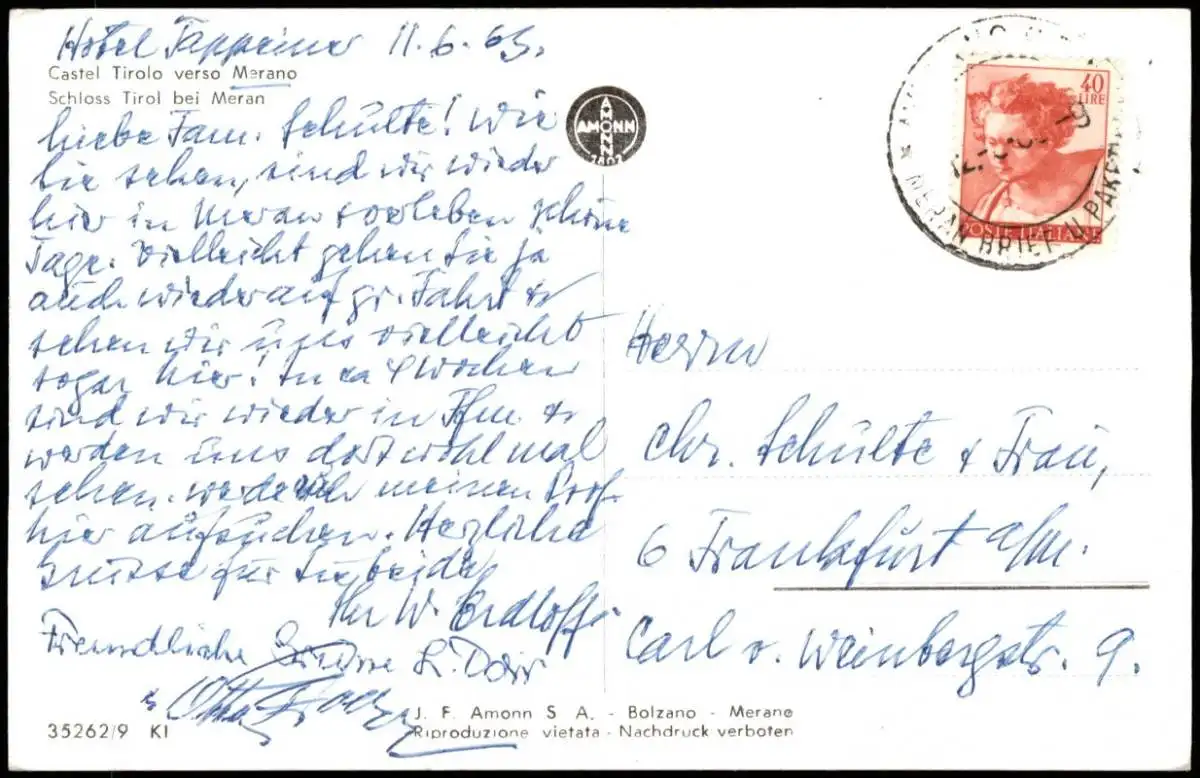 Hotel Tappeiner 11.6.63.
Castel Tirolo verso Merano
Schloss Tirol bei Meran
Liebe Fam. Schulte! Wie
Sie sehen, sind wir wieder
hier in Meran verleben schöne
Tage. Vielleicht gehen Sie ja
auch wieder auf gr. Fahrt &
sehen wir uns vielleicht
sogar hier! In ca 4 Wochen
sind wir wieder in Ffm. &
werden uns dort wohl mal
sehen. Werde meinen Prof.
hier aufsuchen. Herzliche
Grüsse für Sie beide
Ihr W.
Freundliche Grüsse L. Dörr
Otto
35262/9 KI
AMONN
AMONN
1802
J. F. Amonn S A. - Bolzano - Merano
Riproduzione vietata - Nachdruck verboten
40
LIRE
POSTE ITALIANE
MERAN BRIEF U. PAKET
12.-6.
-9
Herrn
Chr. Schulte & Frau,
6 Frankfurt a/m.
Carl v. Weinbergstr. 9.